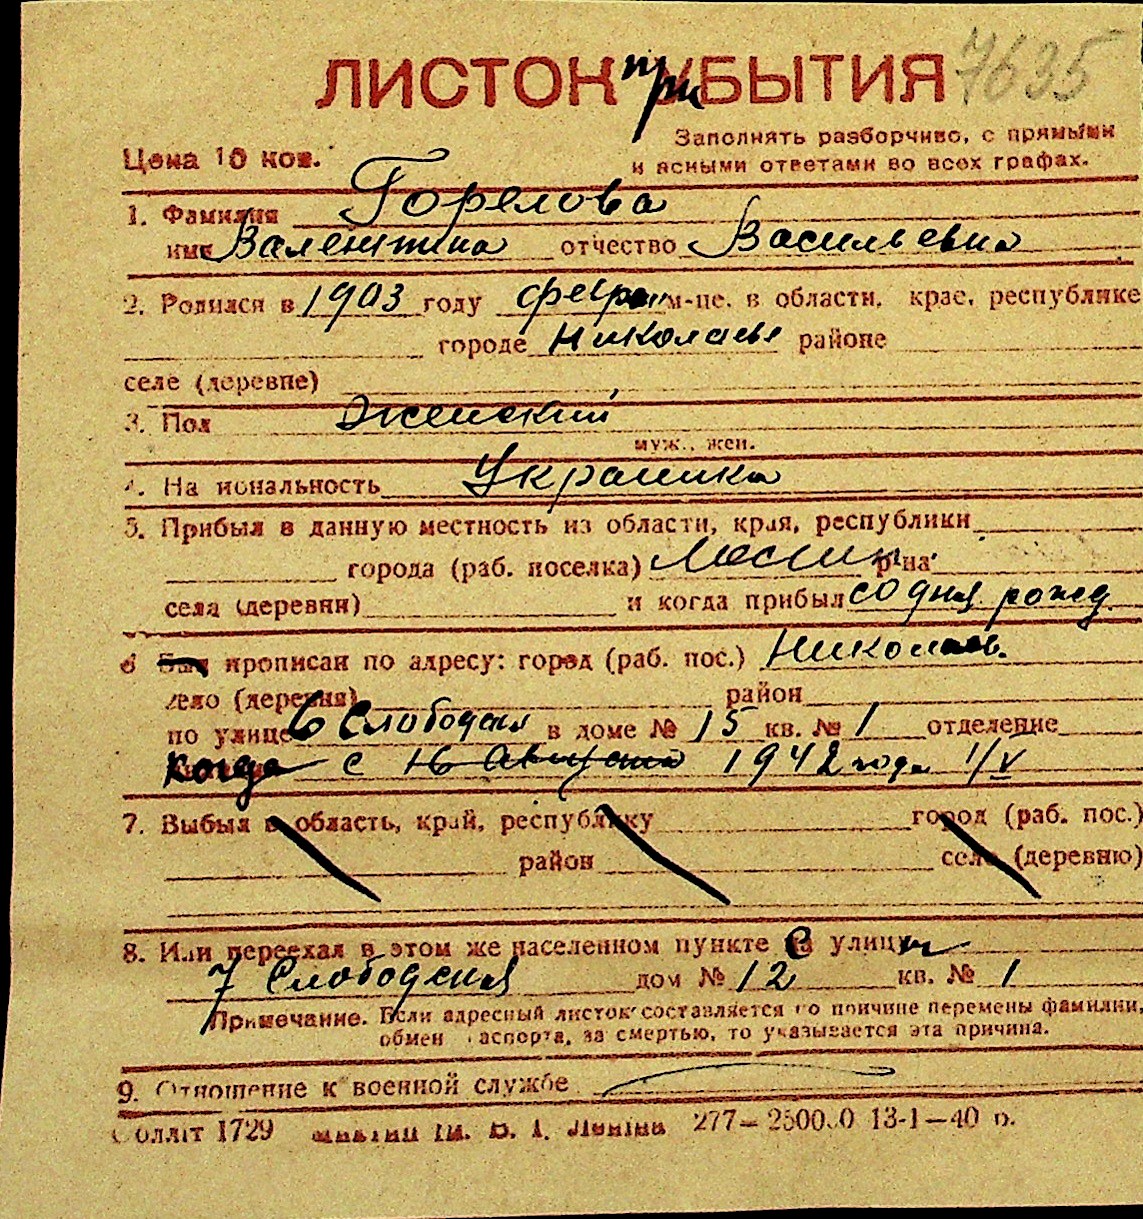 ЛИСТОК при УБЫТИЯ 7635
Цена 10 коп. Заполнять разборчиво, с прямыми
и ясными ответами во всех графах.
1. Фамилия Горелова
имя Валентина отчество Васильевна
2. Родился в 1903 году феврал м-це, в области, крае, республике
городе Николаеве районе
селе (деревне)
3. Пол Женский
муж., жен.
4. На иональность Украинка
5. Прибыл в данную местность из области, края, республики
города (раб. поселка) р-на
села (деревни) и когда прибыл со дня рожд.
6 Был прописан по адресу: город (раб. пос.) Николаев.
село (деревня) район
по улице 6 Слободская в доме № 15 кв. № 1 отделение
когда с 16 Августа 1942 года 1/V
7. Выбыл в область, край, республику город (раб. пос.)
район село (деревню)
8. Или переехал в этом же населенном пункте с улицы
7 Слободская дом № 12 кв. № 1
Примечание. Если адресный листок составляется по причине перемены фамилии,
обмен паспорта, за смертью, то указывается эта причина.
9. Отношение к военной службе
Облліт 1729 ім. В. І. Леніна 277—250000 13-1—40 р.